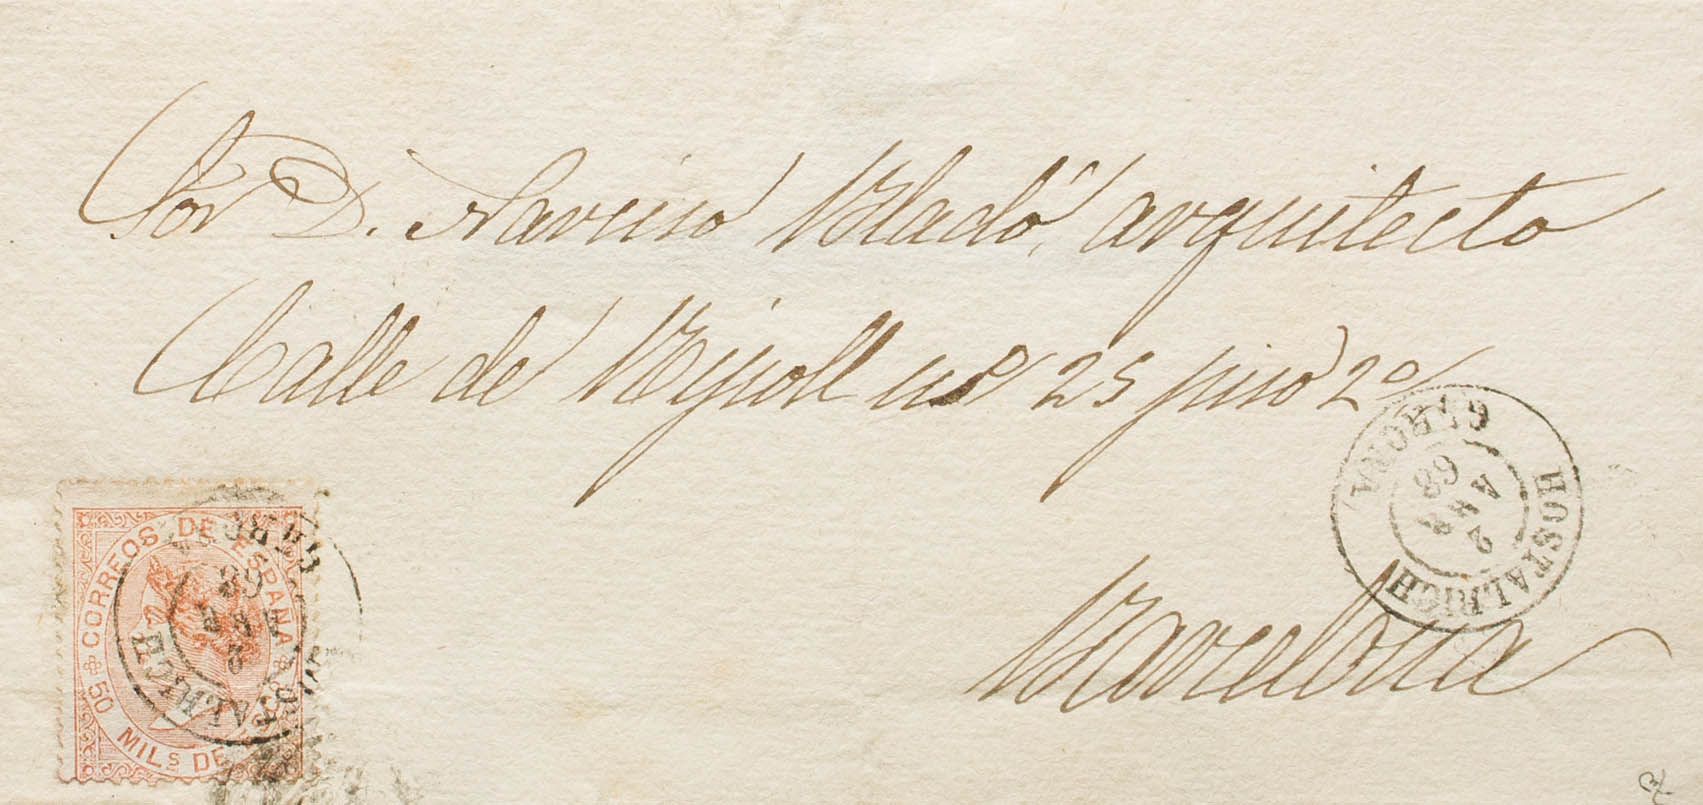 Sor D. Narciso Bladó, arquitecto
Calle de Ripoll nº 25 piso 2º
Barcelona
HOSTALRICH
GERONA
2
68
CORREOS DE ESPAÑA
50 MILS DE
HOSTALRICH
2
68